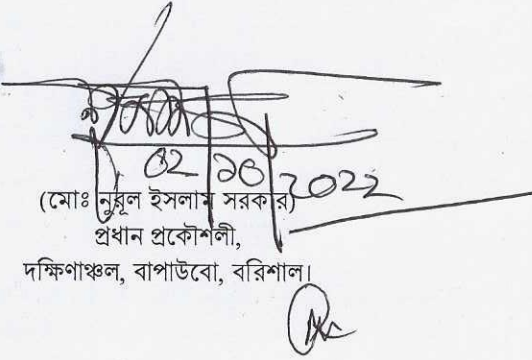 02 | 10 | 2022
(মোঃ নুরুল ইসলাম সরকার)
প্রধান প্রকৌশলী,
দক্ষিণাঞ্চল, বাপাউবো, বরিশাল।